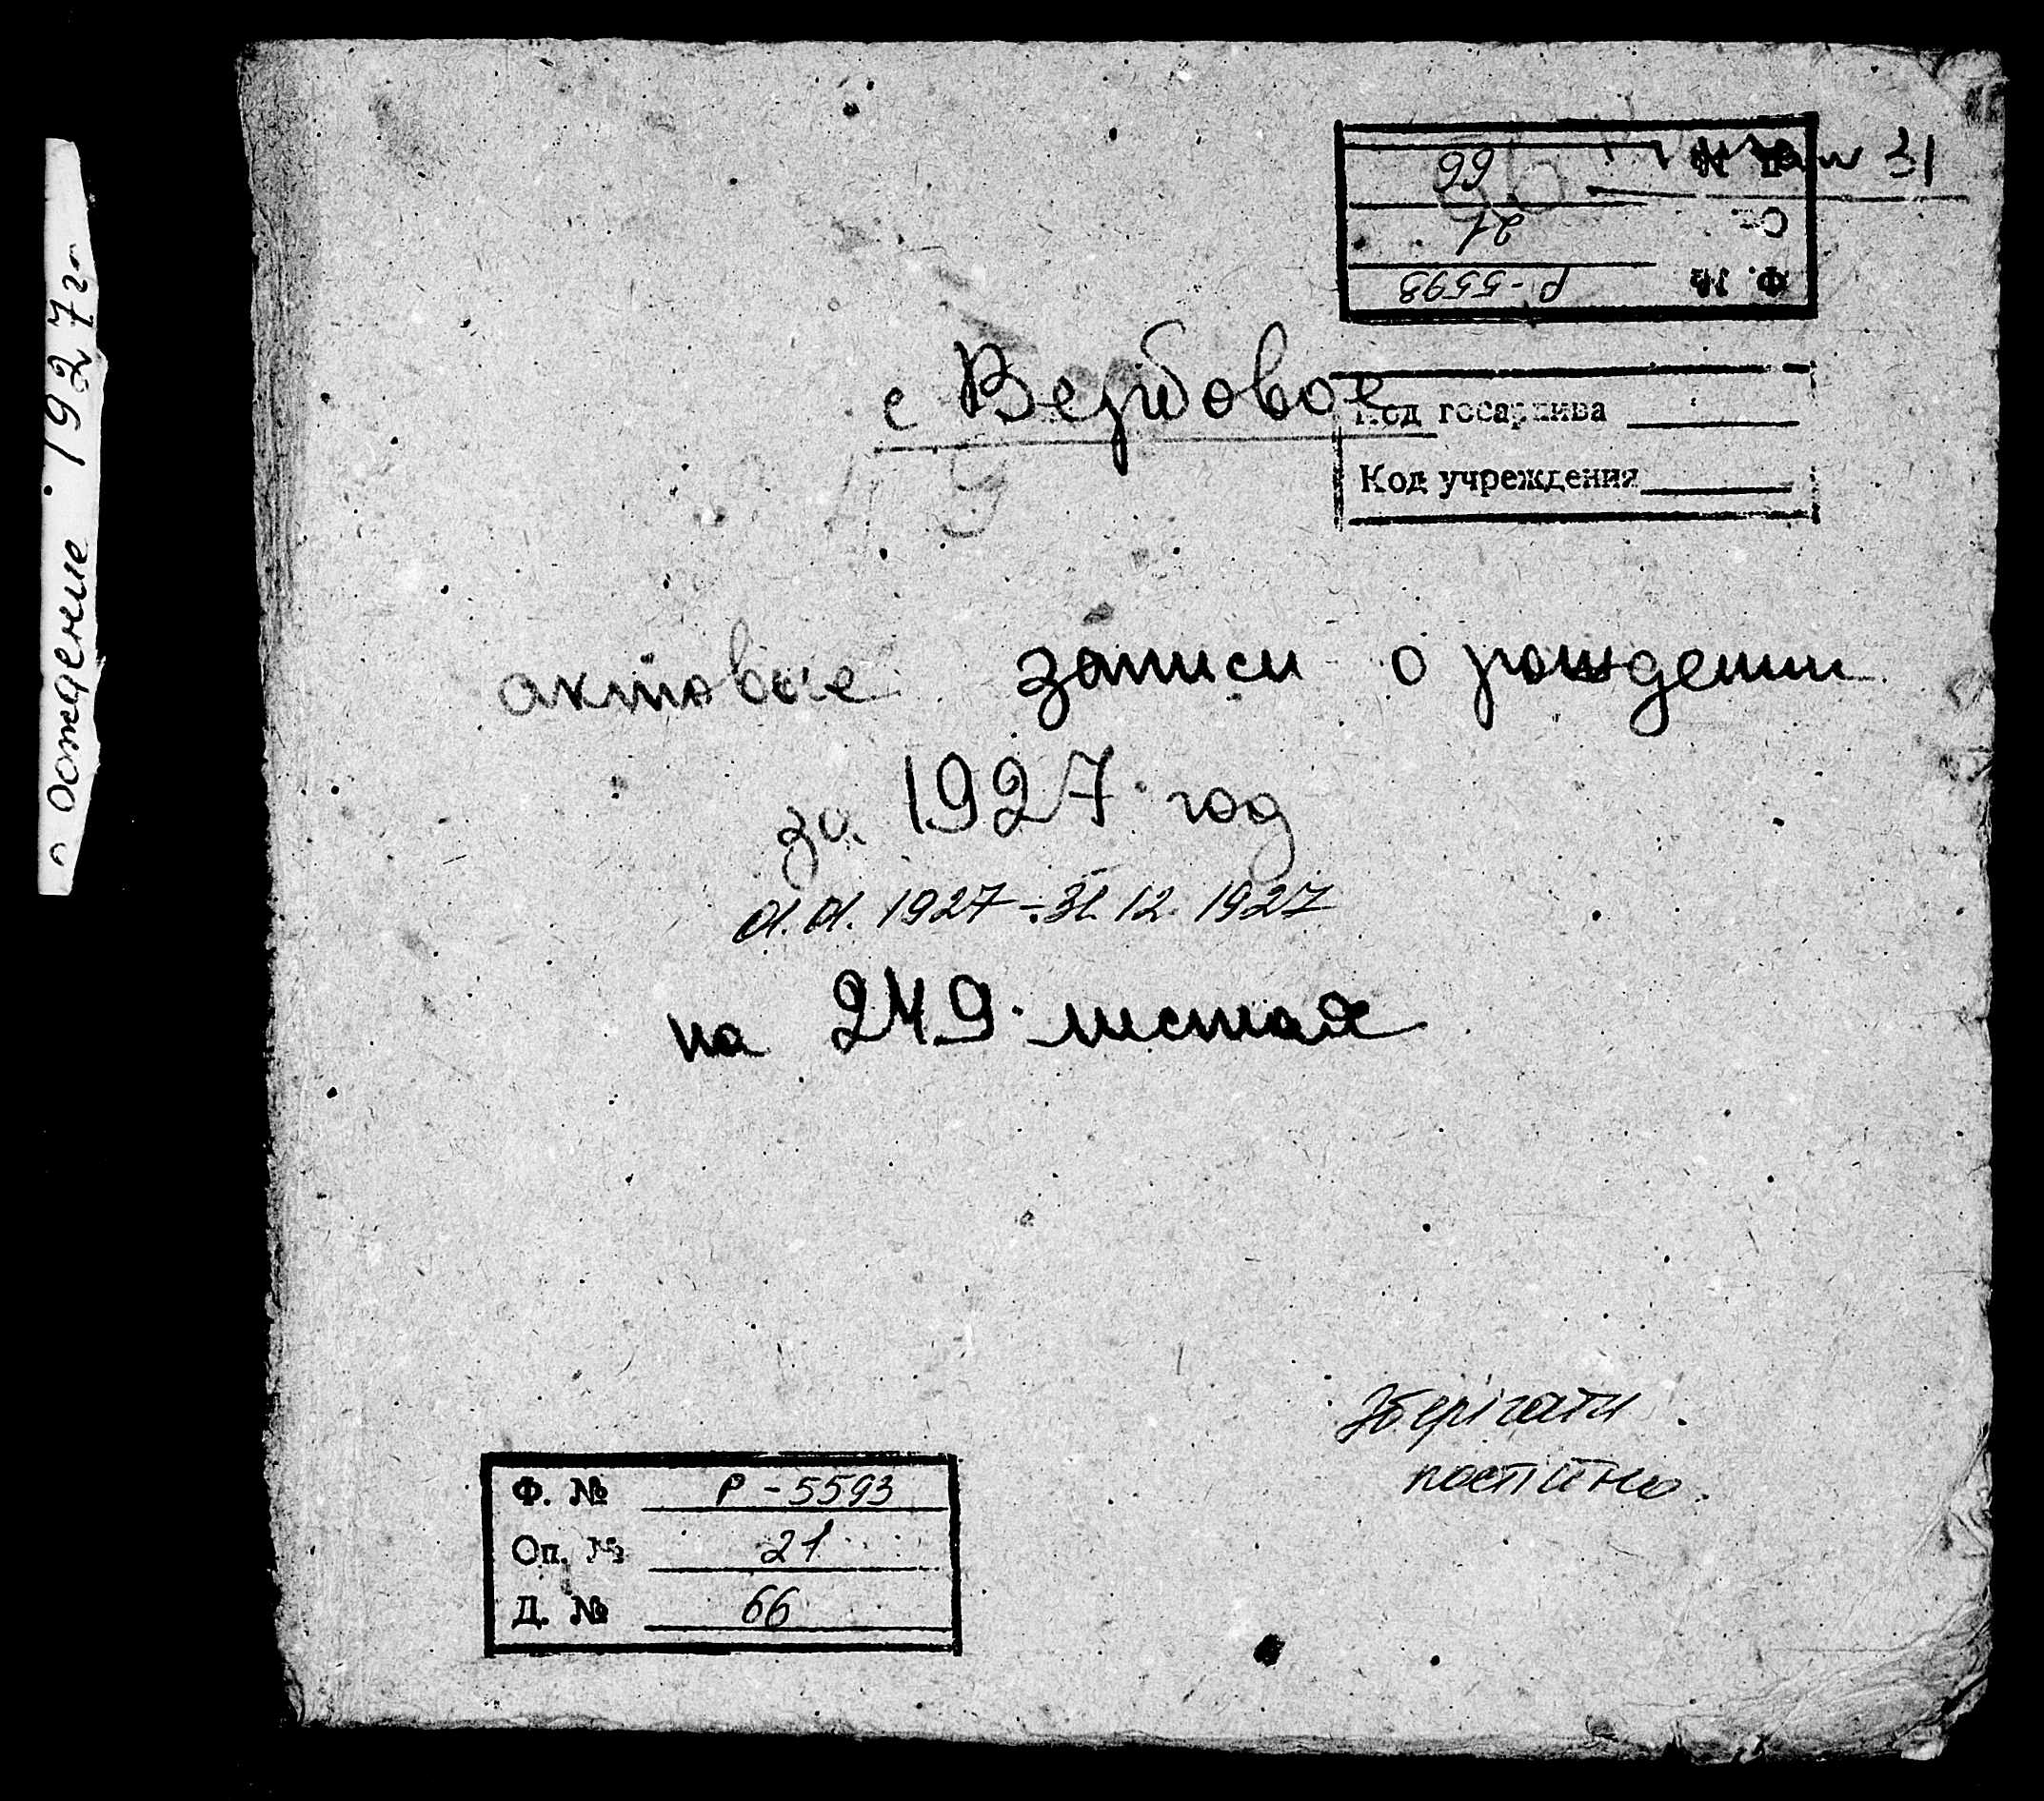 Рождение 1927 г
31
Д. № 66
Оп. 21
Ф. № Р-5593
с Вербовое
Код госархива
Код учреждения
актовые записи о рождении
за 1927 год
01.01.1927-31.12.1927
на 249 листах
Зберігати
постійно.
Ф. № Р-5593
Оп. № 21
Д. № 66